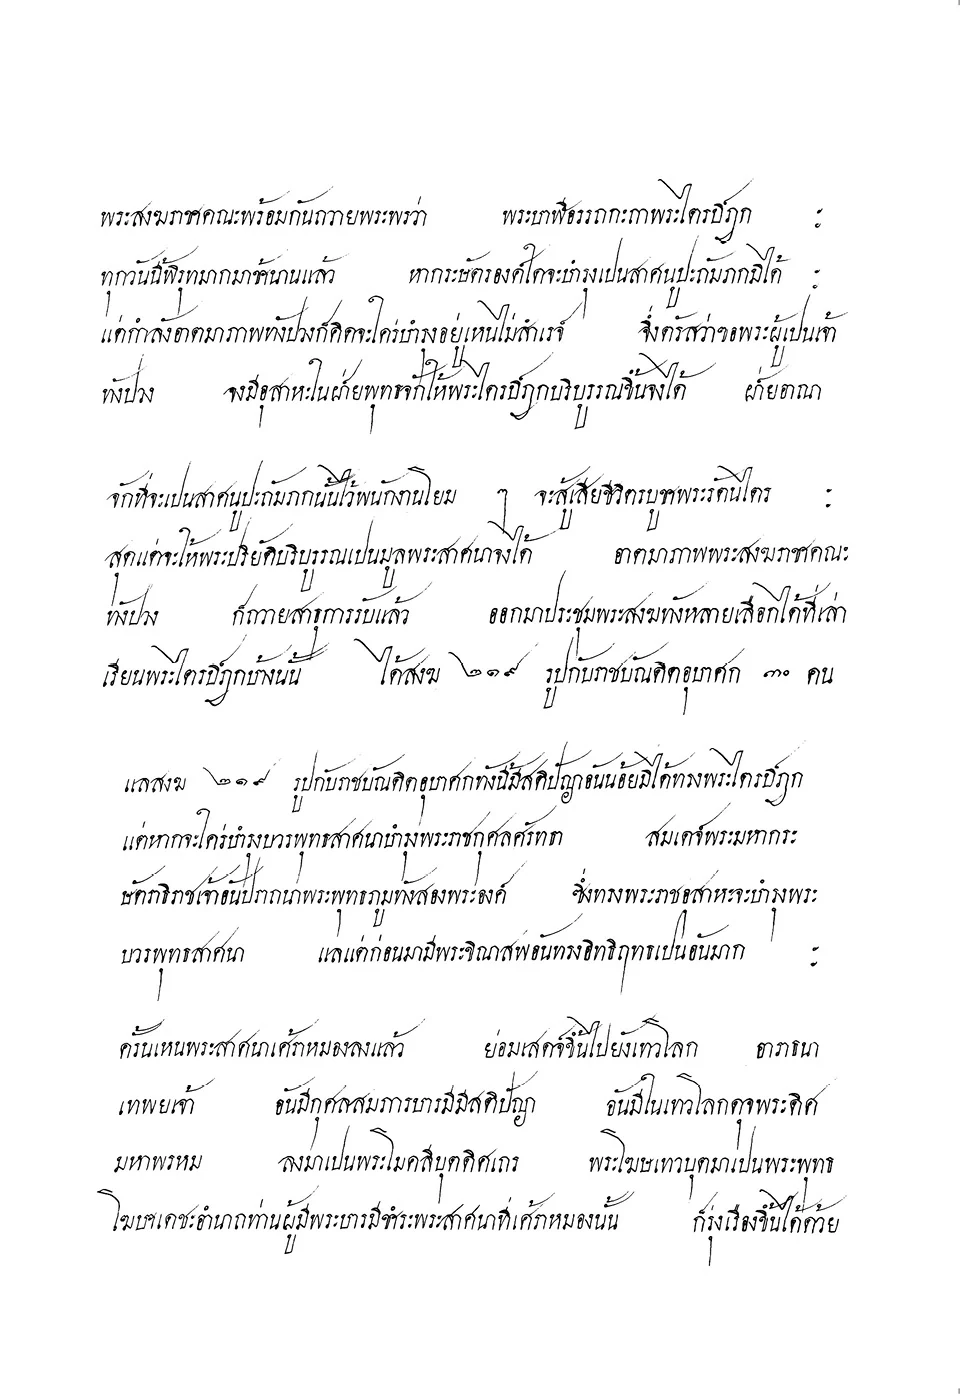 พระสงฆราชคณะพร้อมกันถวายพระพรว่า พระบาฬีอรรถกะถาพระไตรปิฎก ฯ
ทุกวันนี้พิรุทมากมาช้านานแล้ว หากระษัตรองค์ใดจะบำรุงเปนสาศนูปะถัมภกมิได้ ฯ
แต่กำลังอาตมาภาพทังปวงก็คิดจะใคร่บำรุงอยู่เหนไม่สำเรจ์ จึ่งตรัสว่าขอพระผู้เปนเจ้า
ทังปวง จงมีอุสาหะในฝ่ายพุทธจักให้พระไตรปิฎกบริบูรรณขึ้นจงได้ ฝ่ายอาณา
จักที่จะเปนสาศนูปะถัมภกนั้นไว้พนักงานโยม ๆ จะสู้เสียชีวิตรบูชาพระรัตนไตร ฯ
สุดแต่จะให้พระปริยัติบริบูรรณเปนมูลพระสาศนาจงได้ อาตมาภาพพระสงฆราชคณะ
ทังปวง ก็ถวายสาธุการรับแล้ว ออกมาประชุมพระสงฆทังหลายเลือกได้ที่เล่า
เรียนพระไตรปิฎกบ้างนั้น ได้สงฆ ๒๑๙ รูปกับราชบัณดิตอุบาศก ๓๐ คน
แลสงฆ ๒๑๙ รูปกับราชบัณดิตอุบาศกทังนี้มีสติปัญาอันน้อยมิได้ทางพระไตรปิฎก
แต่หากจะใคร่บำรุงบวรพุทธสาศนาบำรุงพระราชกุศลศรัทธา สมเดจ์พระมหากระ
ษัตราธิราชเจ้าอันปราถนาพระพุทธภูมทังสองพระองค์ ซึ่งทางพระราชอุสาหะจะบำรุงพระ
บวรพุทธสาศนา แลแต่ก่อนมามีพระขิณาสพอันทรงอิทธิฤทธเปนอันมาก ฯ
ครั้นเหนพระสาศนาเศร้าหมองลงแล้ว ย่อมเสดจ์ขึ้นไปยังเทวโลก อาราธนา
เทพยเจ้า อันมีกุศลสมภารบารมีมีสติปัญา อันมีในเทวโลกดุจพระติศ
มหาพรหม ลงมาเปนพระโมคลีบุตติศเถร พระโฆษเทวาบุตมาเปนพระพุทธ
โฆษาเดชะอำนาถท่านผู้มีพระบารมีชำระพระสาศนาที่เศร้าหมองนั้น ก็รุ่งเรืองขึ้นได้ด้วย